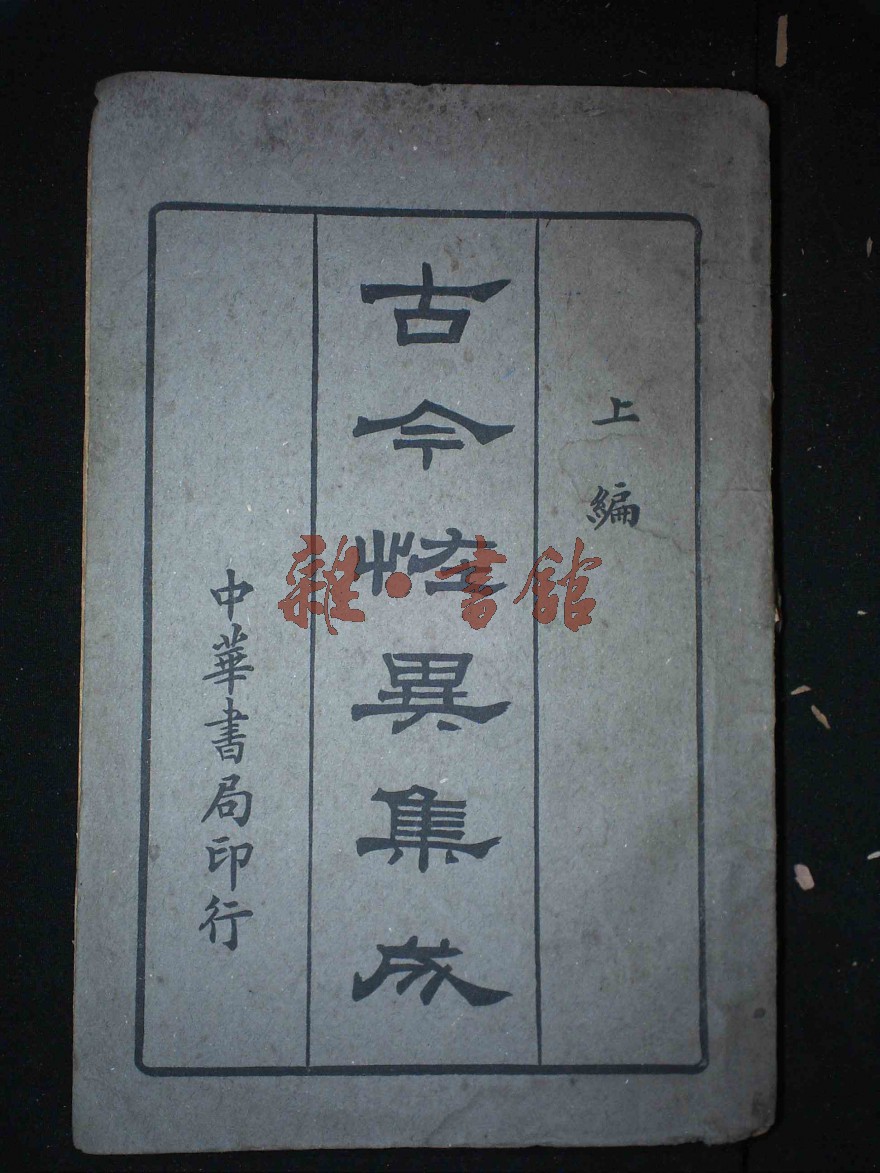 上編
古今怪異集成
中華書局印行
雜·書館